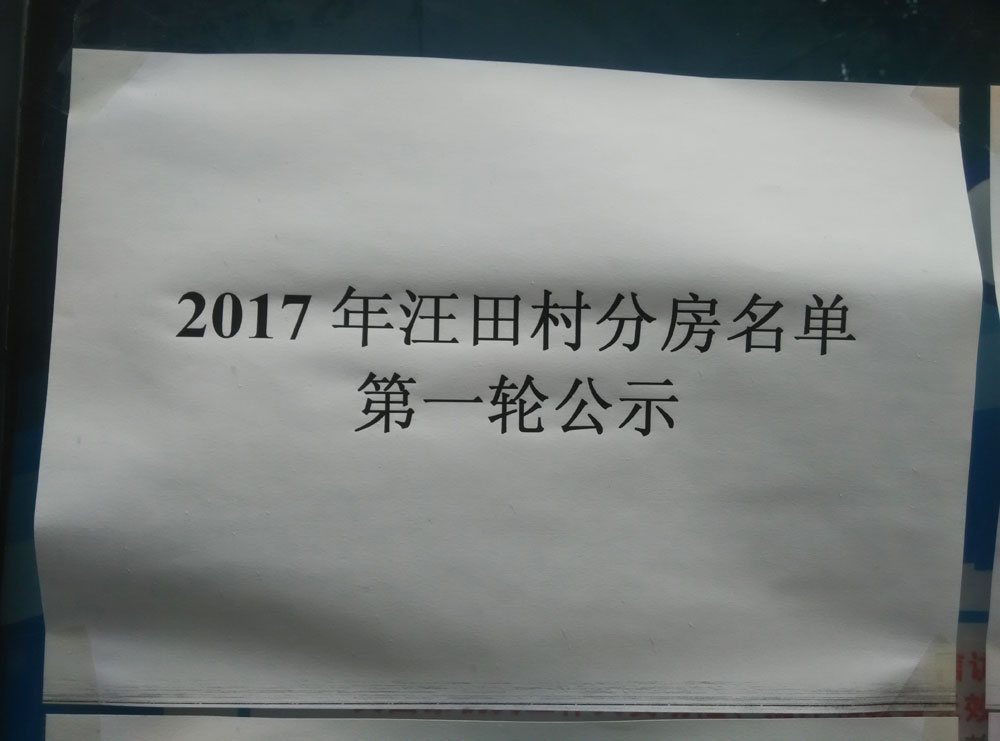 2017年汪田村分房名单
第一轮公示